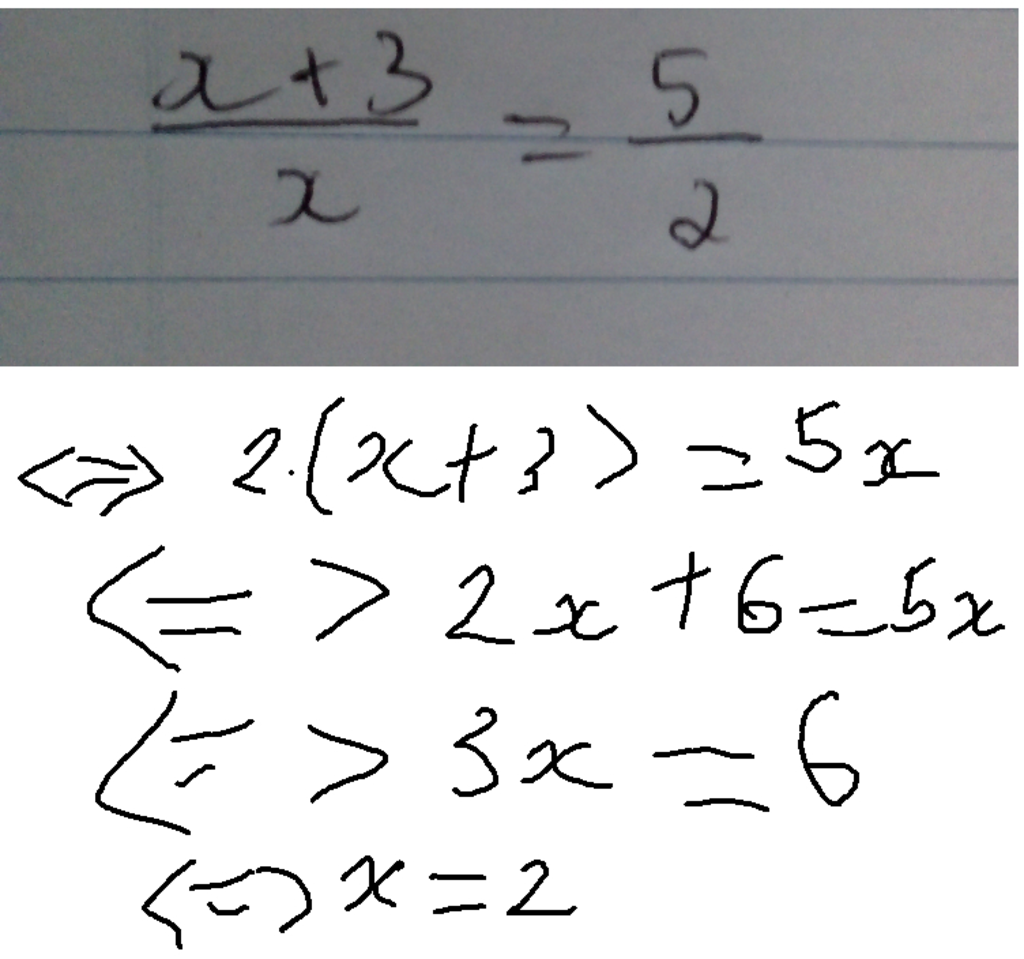 x+3/x = 5/2
<=> 2.(x+3) = 5x
<=> 2x+6=5x
<=> 3x=6
<=> x=2